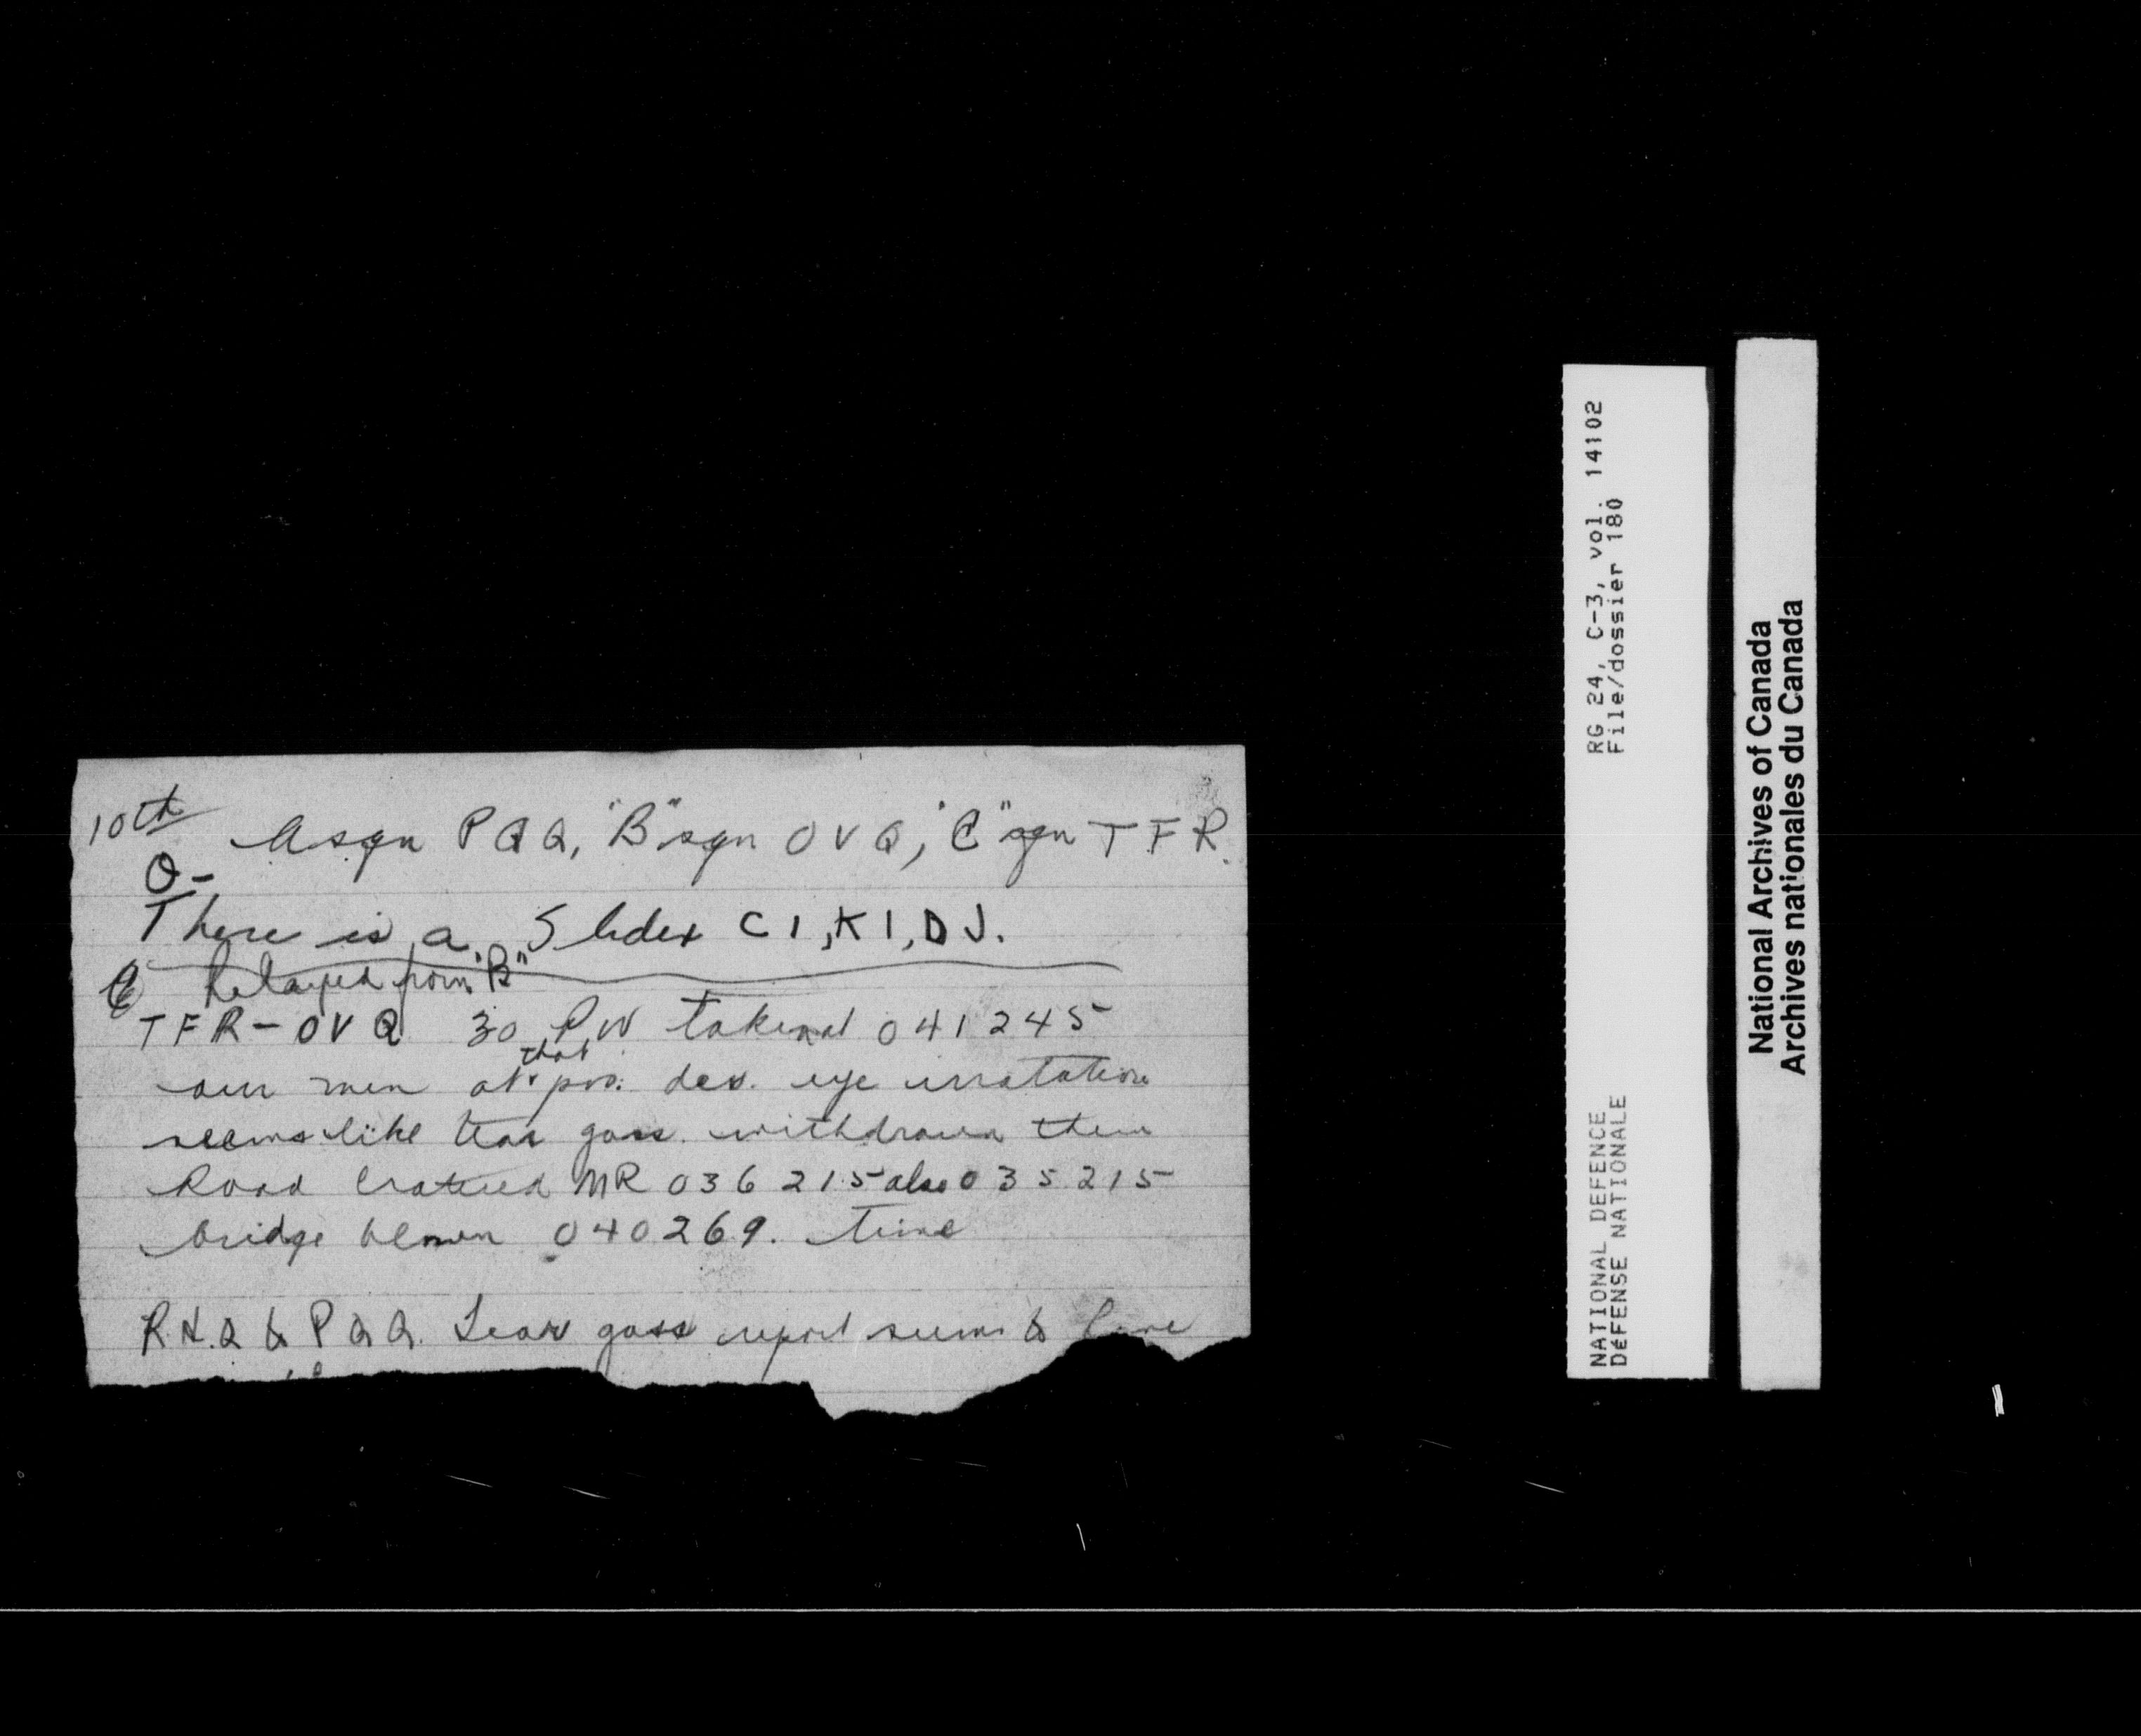 10th A sqn PQQ, "B" sqn OVQ, "C" sqn TFR.
O-
There is a Slidex C1, K1, DJ.
Relayed from "B"
TFR - OVQ 30 PW taken at 041245
our men at that pos. dev. eye irratation
seems like tear gass. withdrawn them
Road cratered MR 036215 also 035215
bridge blown 040269. time
R.H.Q to PQQ. Tear gass report seems to
RG 24, C-3, vol. 14102
File/dossier 180
NATIONAL DEFENCE
DéFENSE NATIONALE
National Archives of Canada
Archives nationales du Canada